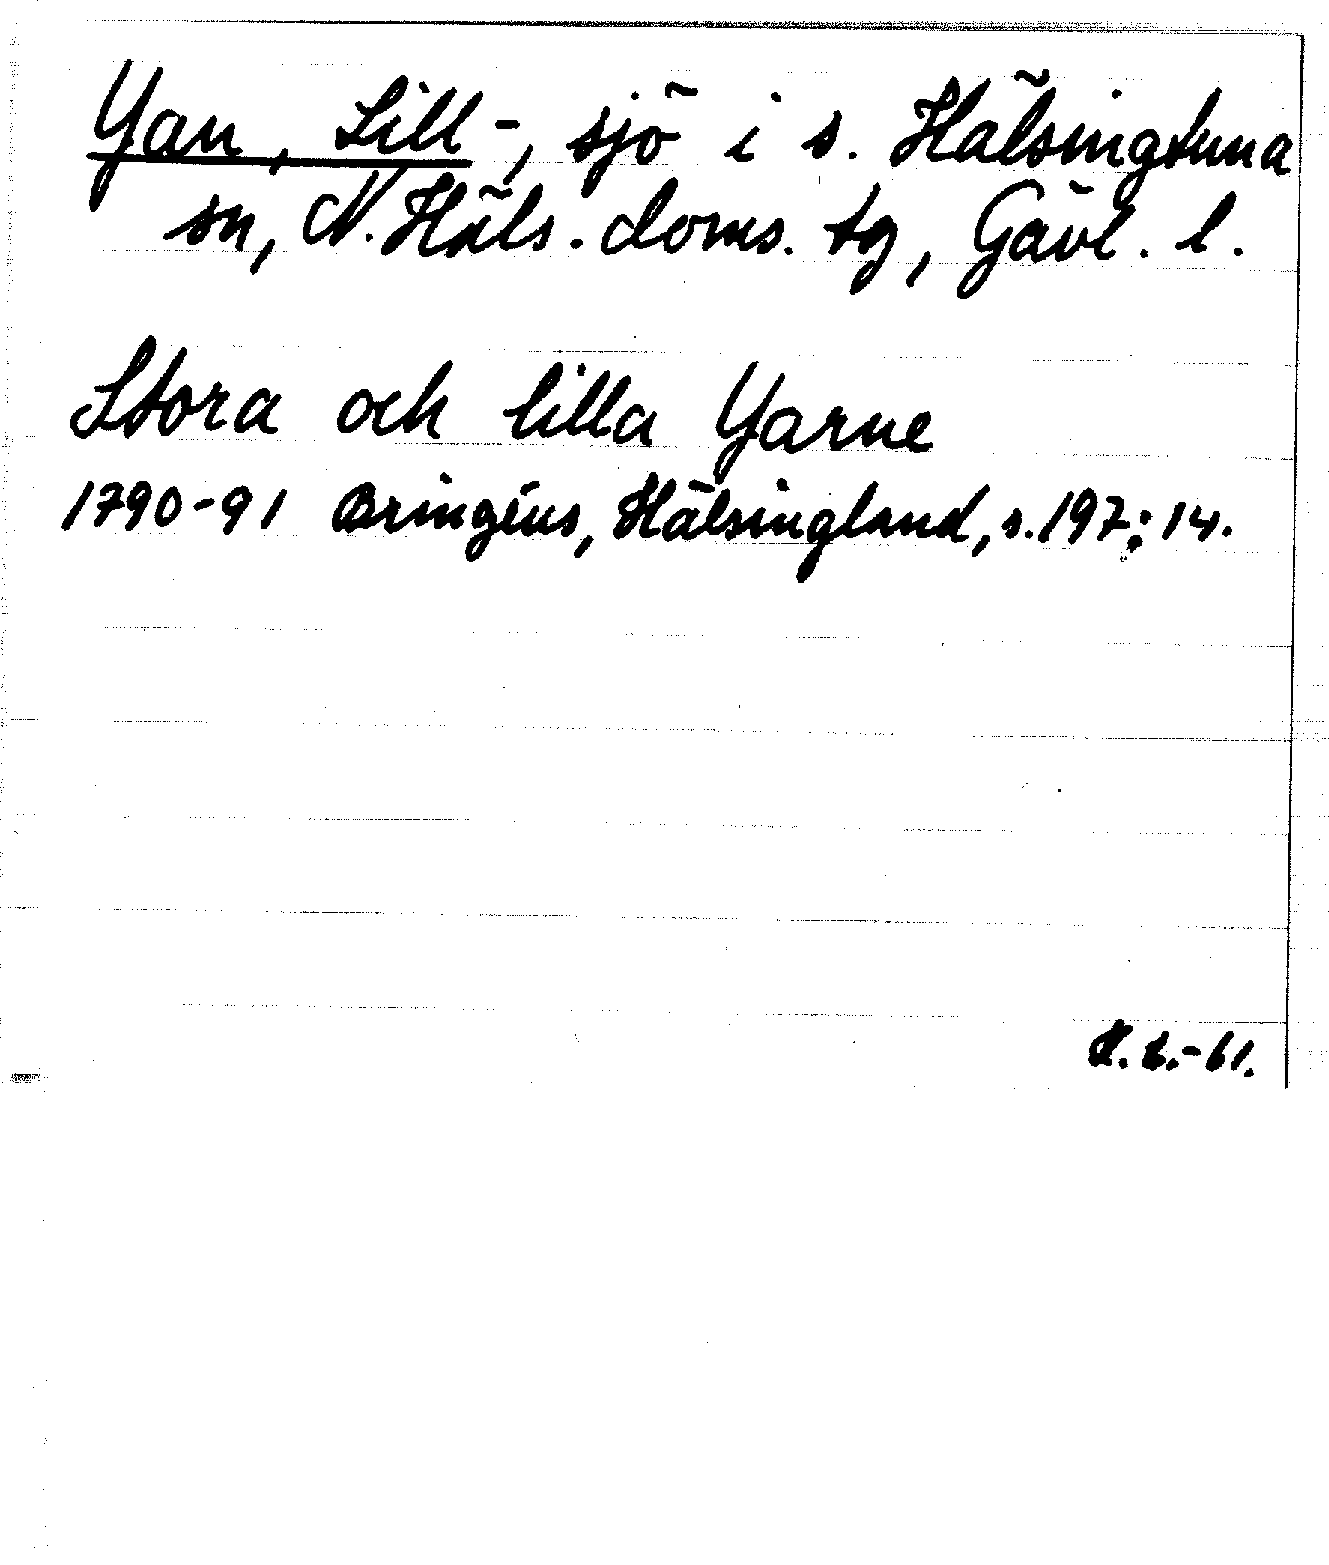 Yan, Lill-, sjö i s. Hälsingtuna
sn, N. Häls. doms. tg, Gävl. l.
Stora och lilla Yarne
1790-91 Bringéus, Hälsingland, s. 197:14.
-61.